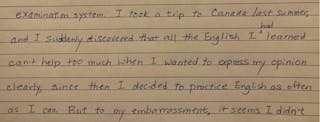 examination system. I took a trip to Canada last summer,
and I suddenly discovered that all the English I had learned
can't help too much when I wanted to express my opinion
clearly, since then I decided to practice English as often
as I can. But to my embarrassment, it seems I didn't